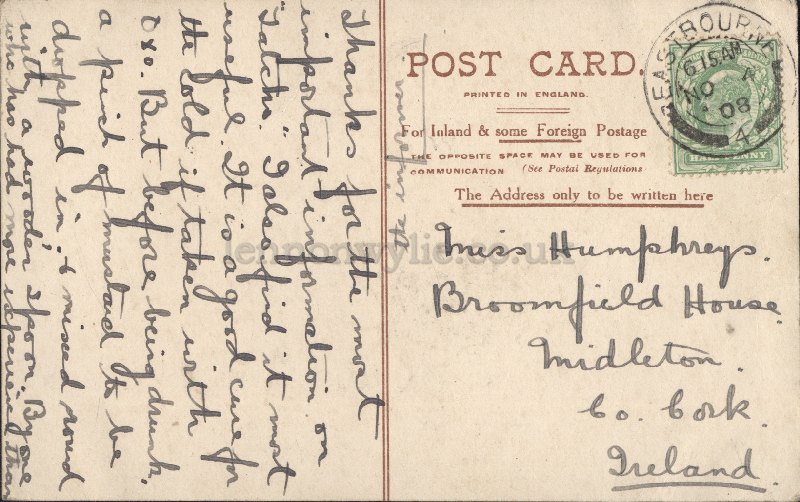 Thanks for the most
important information on
"Tatcho." I also find it most
useful. It is a good cure for
the cold if taken with
Oxo. But before being drunk.
a pint of mustard to be
dropped in & mixed round
with a wooden spoon. By one
who has had more experience than
the informer
POST CARD.
PRINTED IN ENGLAND.
For Inland & some Foreign Postage
THE OPPOSITE SPACE MAY BE USED FOR
COMMUNICATION (See Postal Regulations
The Address only to be written here
EASTBOURNE
6 15 AM
NO 4
08
4
HALFPENNY
Miss Humphreys.
Broomfield House.
Midleton.
Co. Cork.
Ireland.
lennonwylie.co.uk